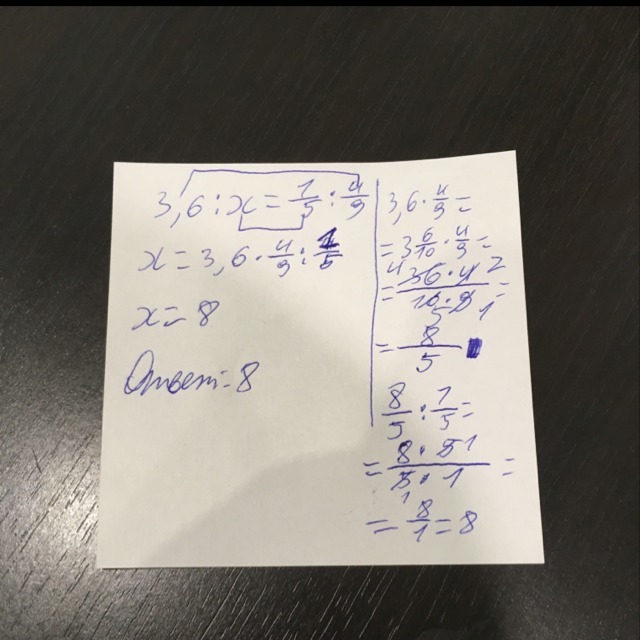 3,6 : x = 1/5 : 4/9
x = 3,6 · 4/9 : 1/5
x = 8
Ответ: 8
3,6 · 4/9 =
= 3 6/10 · 4/9 =
= 4 36 · 4 2 / 10 · 9 5 1 =
= 8/5
8/5 : 1/5 =
= 8 · 5 1 / 5 · 1 1 =
= 8/1 = 8